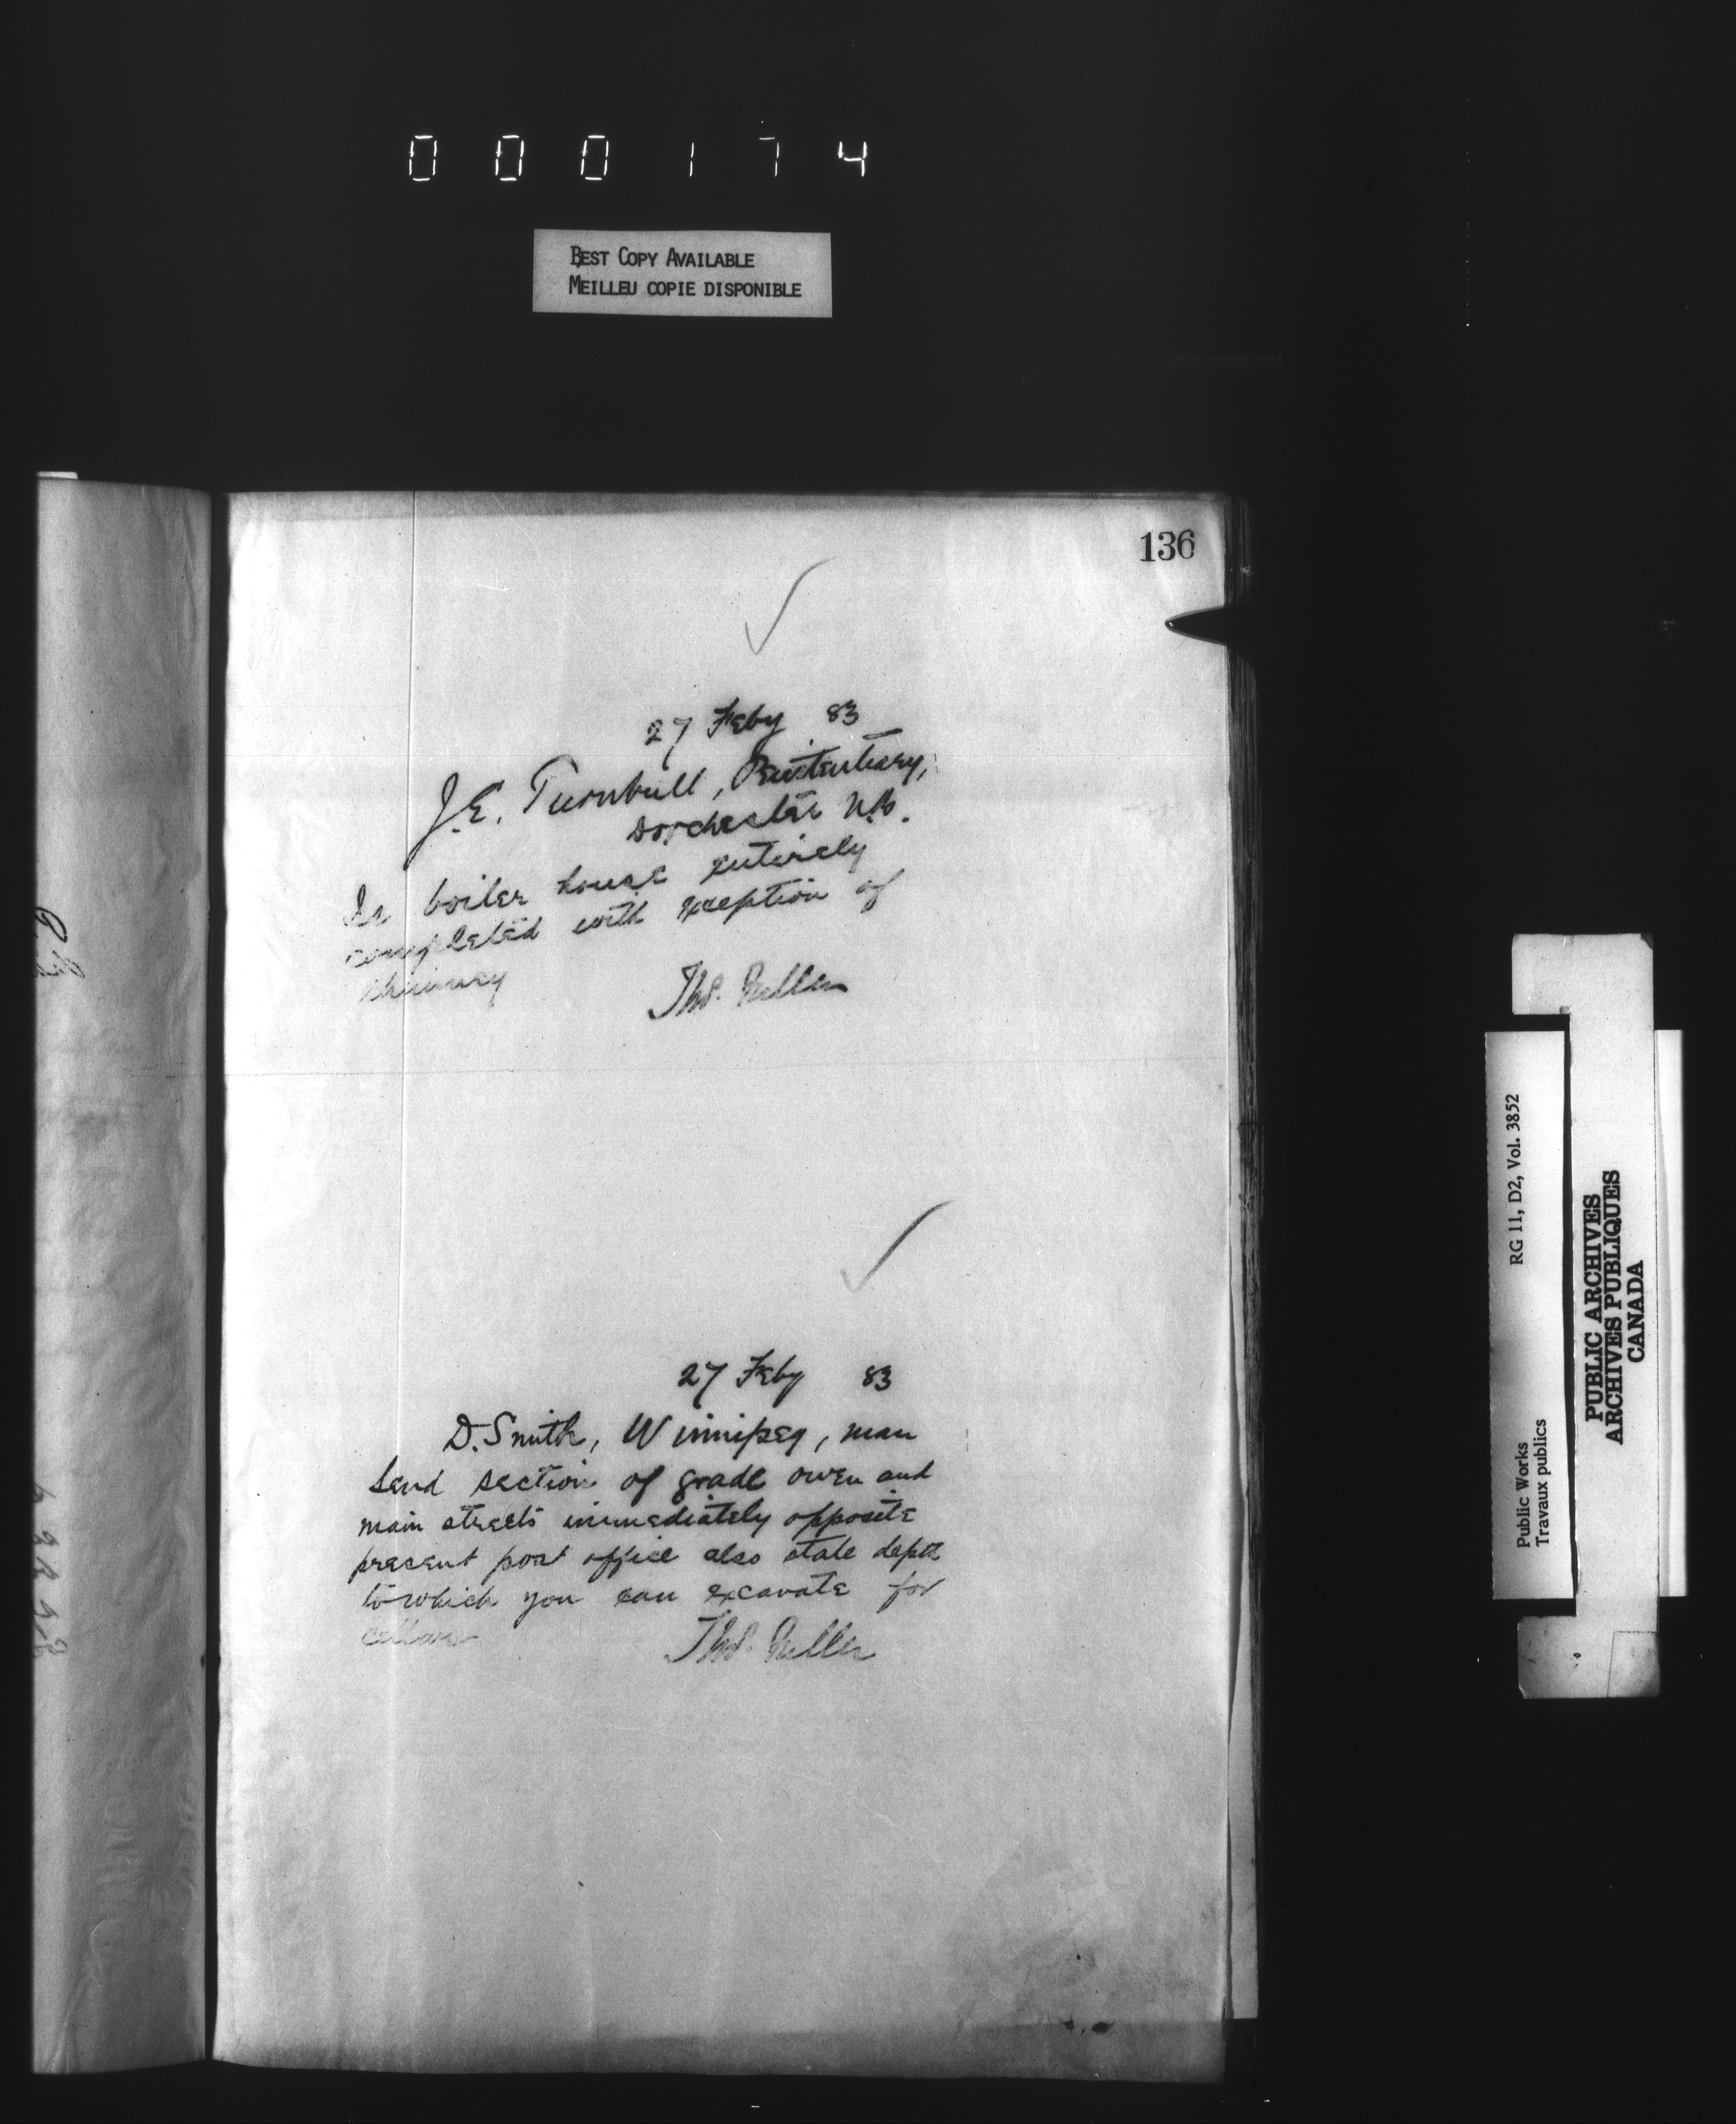 000174
BEST COPY AVAILABLE
MEILLEU COPIE DISPONIBLE
136
27 Feby 83
J.E. Turnbull, Penitentiary,
Dorchester N.B.
Is boiler house entirely
completed with exception of
chimney
Thos. Fuller
27 Feby 83
D. Smith, Winnipeg, man
Send section of grade owen and
main streets immediately opposite
present post office also state depth
to which you can excavate for
cellars
Thos. Fuller
Public Works
Travaux publics
RG 11, D2, Vol. 3852
PUBLIC ARCHIVES
ARCHIVES PUBLIQUES
CANADA